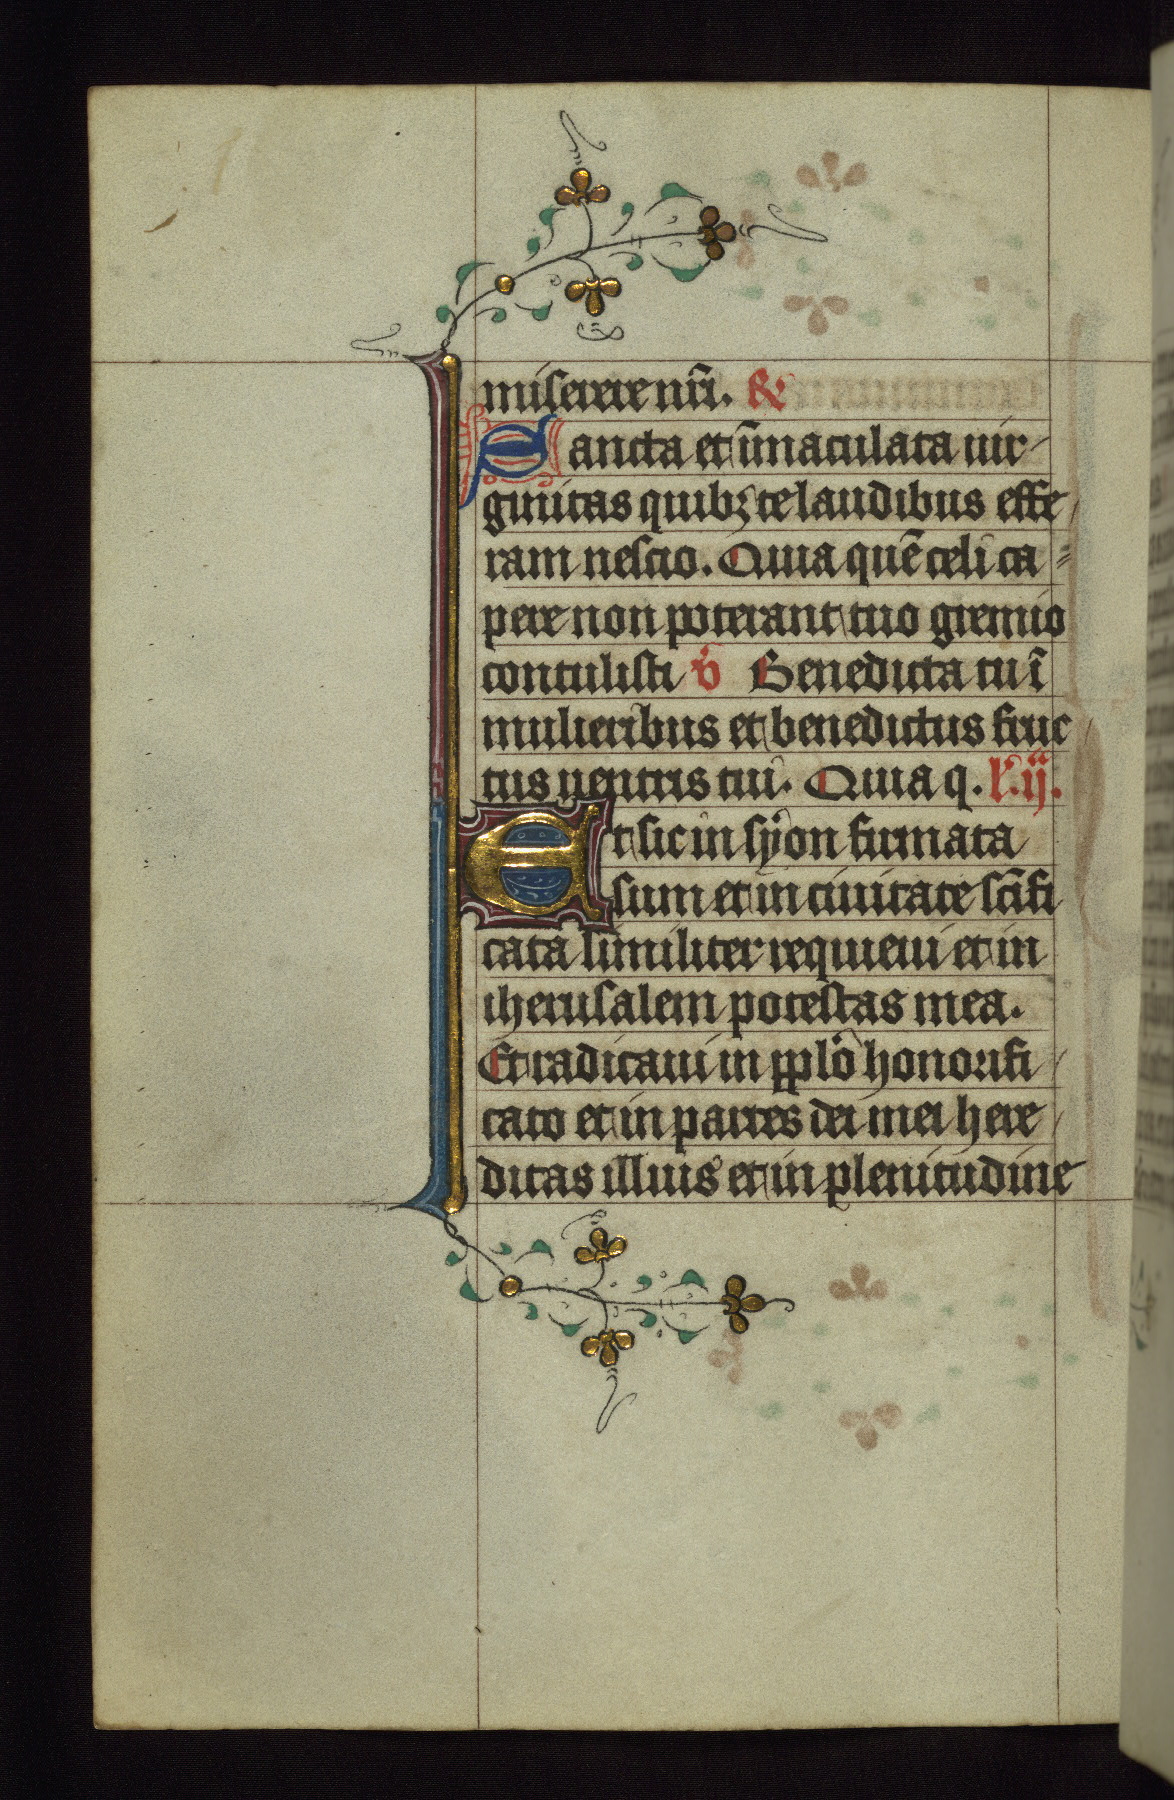 miserere nr̄i. R̷
Sancta et ī̄maculata uir-
ginitas quibꝫ te laudibus effe
ram nescio. Quia quē celi ca=
pere non poterant tuo gremio
contulisti v̊ Benedicta tu ī
mulieribus et benedictus fruc
tus uentris tui. Quia q. l'. ij.
Et sic in syon firmata
sum et in ciuitate sc̄ifi
cata similiter requieui et in
iherusalem potestas mea.
Et radicaui in pplō honorifi
cato et in partes dei mei here
ditas illius et in plenitudine